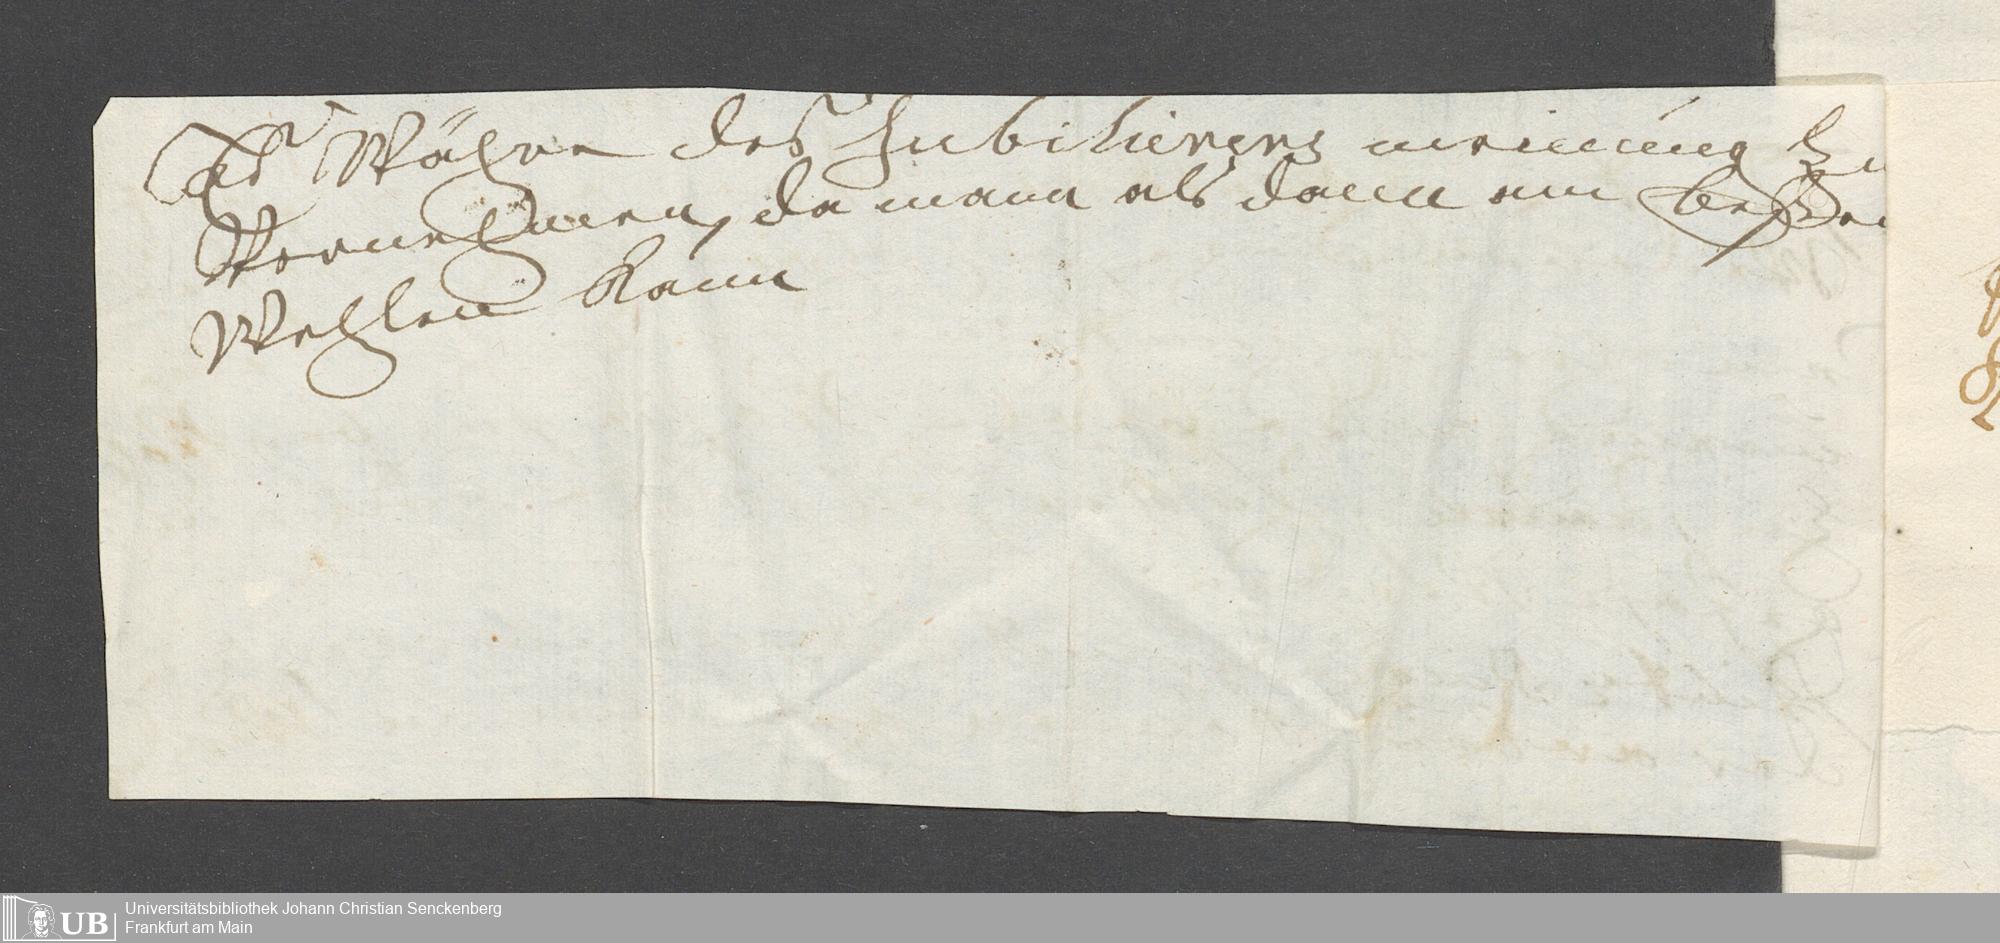 Es Währe des Jubilierers meinung zu
Vernehmen, da mann als dann am besten
Wehlen kann
UB
Universitätsbibliothek Johann Christian Senckenberg
Frankfurt am Main